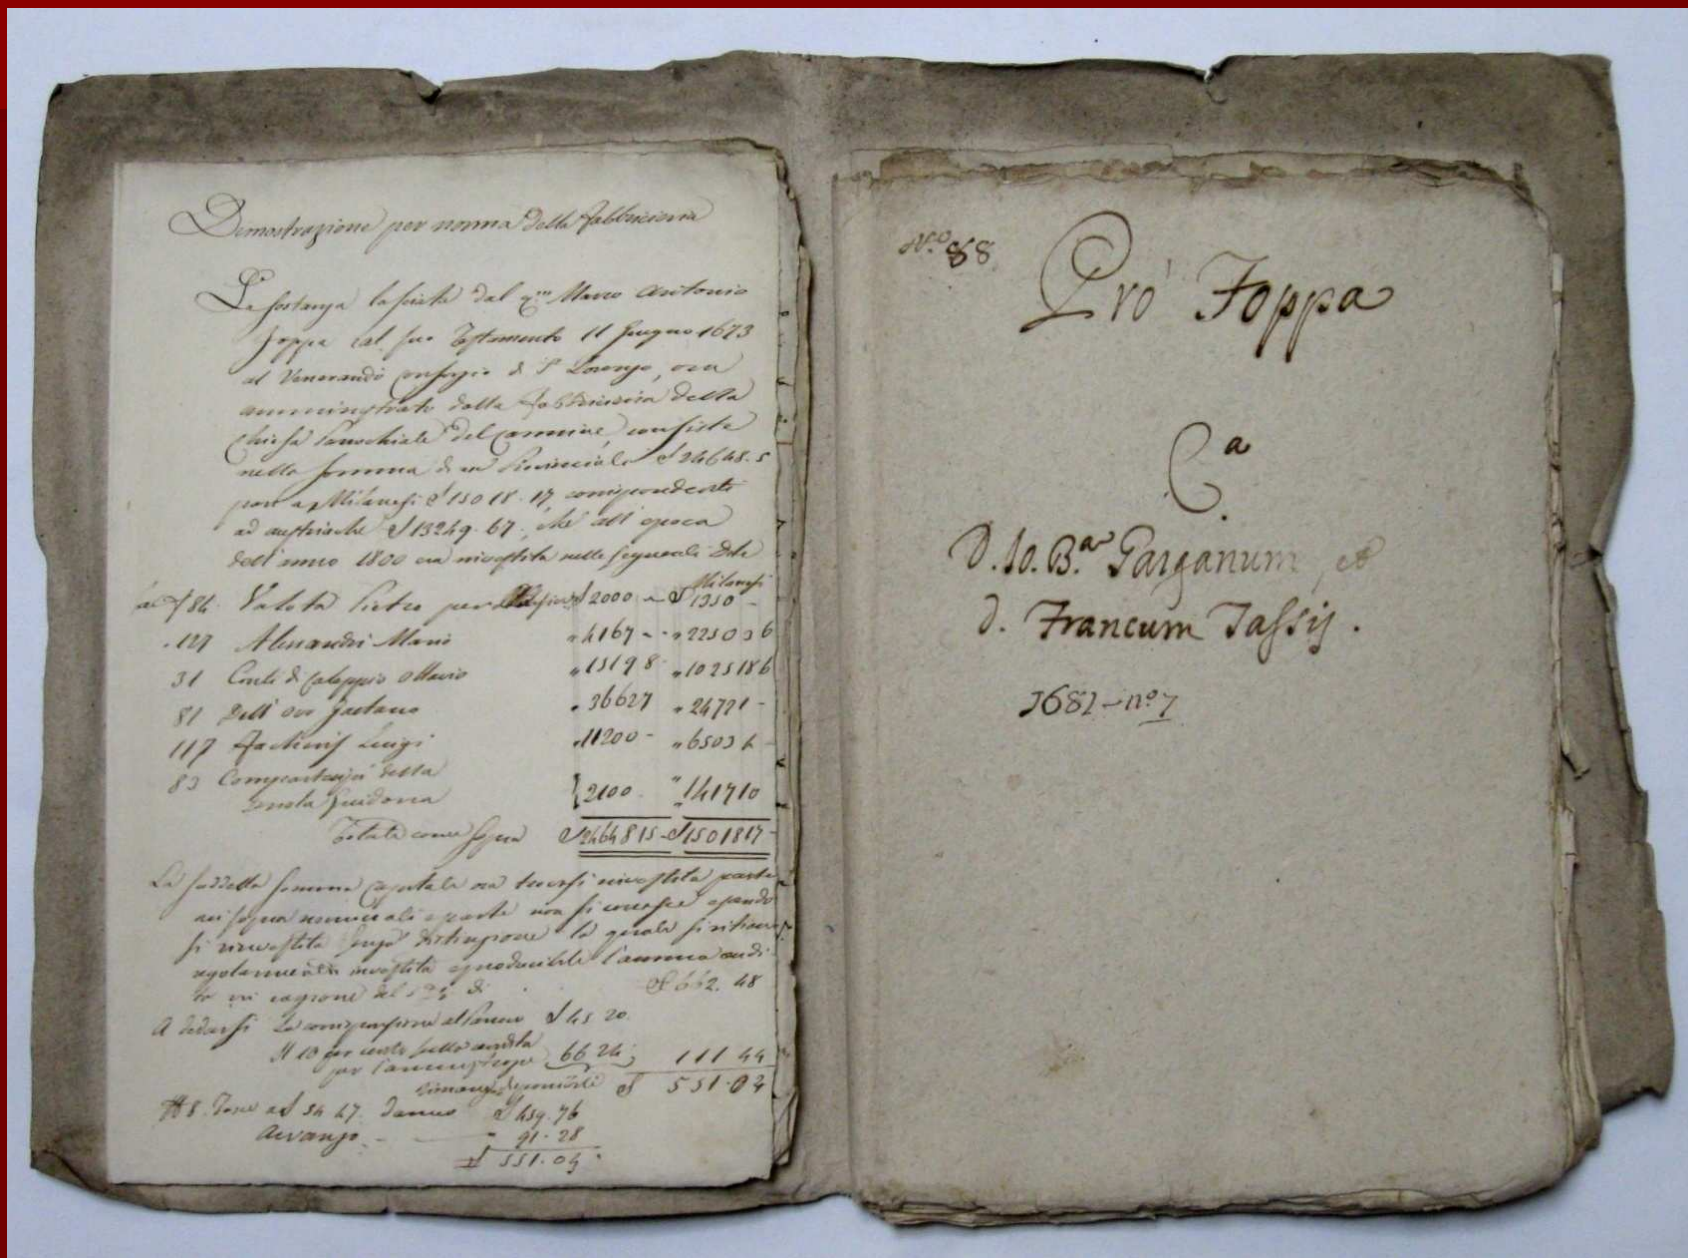 Demostrazione per norma della Fabbricieria
La sostanza lasciata dal qm Marco Antonio
Foppa col suo Testamento 11 Giugno 1673
al Venerando Consorzio di S Lorenzo, ora
amministrato dalla Fabbricieria della
Chiesa Parrochiale del Carmine, consiste
nella somma di Provinciali £ 24648.5
pari a Milanesi £ 15018.17, corrispondenti
ad austriache £ 13249.67, che all'epoca
dell'anno 1800 era investita nelle seguenti Ditte
Milanesi
al 84 Valota Pietro per £ 2000 - £ 1350 -
127 Alessandri Mario " 4167 - " 2250 3 6
31 Conti di Caleppio Ottavio " 1519 8 " 1025 18 6
81 Dell' Oro Gaetano " 36627 " 24721 -
117 Luigi " 11200 - " 6503 4
83 Compartecipi della
Guidona 2100 " 1417 10
Totale come sopra £ 24648 15 - £ 15018 17 -
La suddetta somma capitale ora trovasi investita parte
e parte non si conosce quando
si rinvestita senza distinzione la quale si ritiene
regolarmente investita producibile l'annua rendi
ta in ragione del 5 % di £ 662.48
A dedursi La al £ 45 20
Il 10 per cento sulla rendita
per l' 66 24 111 44
Rimangono disponibili £ 551.04
8. a £ 54 47. Danno £ 459.76
Avanzo - 91.28
£ 551.04
N.o 88
Pro Foppa
C.a
D. Io. B.a Parganum, et
D. Francum Tassij.
1681 - no 7